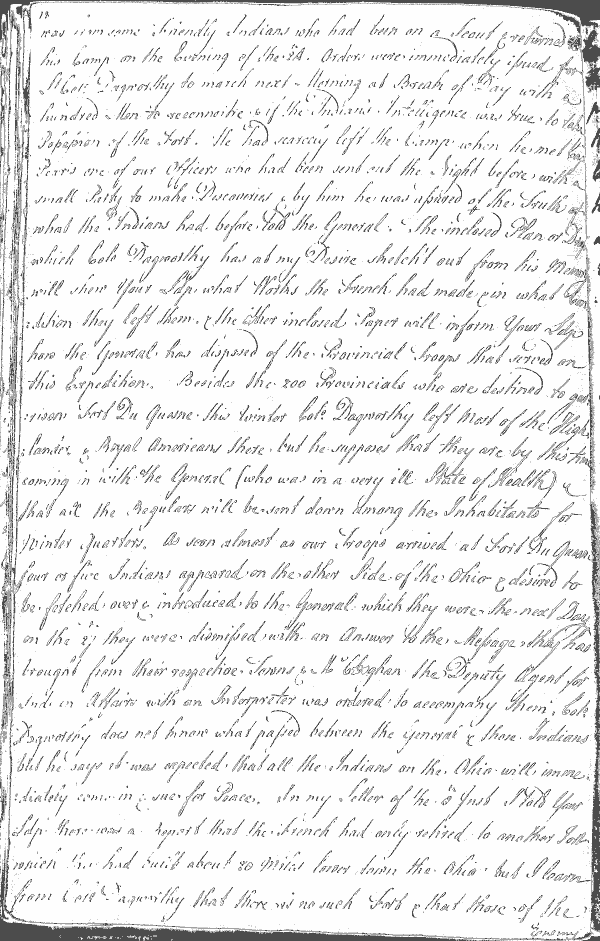 was from some Friendly Indians who had been on a Scout & returned to
his Camp on the Evening of the 24. Orders were immediately issued for
Lt Colo. Dagworthy to march next Morning at Break of Day with a
hundred Men to reconnoitre & if the Indians Intelligence was true to take
Possession of the Fort. He had scarcely left the Camp when he met
one of our Officers who had been sent out the Night before with a
small Party to make Discoveries & by him he was assured of the Truth of
what the Indians had before told the General. The inclosed Plan or
which Colo Dagworthy has at my Desire sketch't out from his Memory
will shew Your Ldp what Works the French had made & in what Con
:dition they left them, & the other inclosed Paper will inform Your Ldp
how the General has disposed of the Provincial Troops that served on
this Expedition. Besides the 200 Provincials who are destined to gar
:rison Fort Du Quesne this Winter Colo. Dagworthy left most of the High
:landers & Royal Americans there but he supposes that they are by this time
coming in with the General (who was in a very ill State of Health) &
that all the Regulars will be sent down among the Inhabitants for
Winter Quarters. As soon almost as our Troops arrived at Fort Du Quesne
four or five Indians appeared on the other Side of the Ohio & desired to
be fetched over & introduced to the General which they were the next Day
on the 27 they were dismissed with an Answer to the Message they had
brought from their respective Towns & Mr Croghan the Deputy Agent for
Indian Affairs with an Interpreter was ordered to accompany them. Colo.
Dagworthy does not know what passed between the General & those Indians
but he says it was expected that all the Indians on the Ohio will imme
:diately come in & sue for Peace. In my Letter of the Inst I told Your
Ldp there was a Report that the French had only retired to another Fort
which they had built about 20 Miles lower down the Ohio but I learn
from Colo Dagworthy that there is no such Fort & that those of the
Enemy